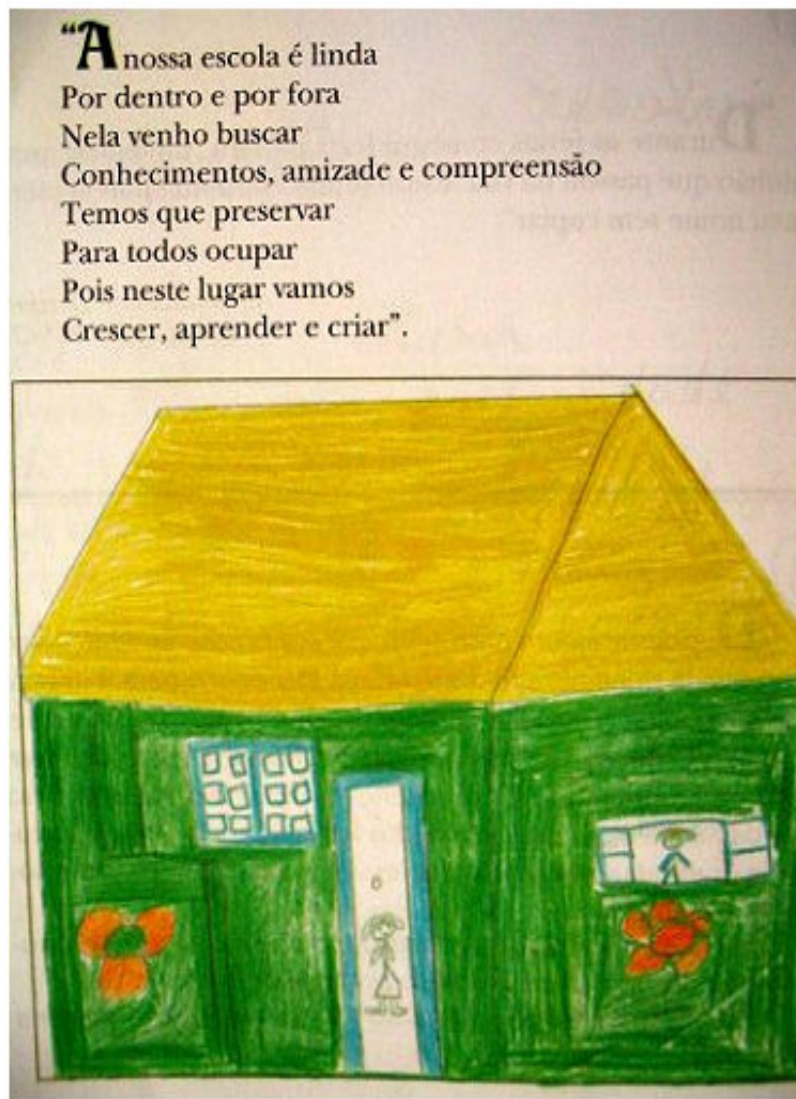 “A nossa escola é linda
Por dentro e por fora
Nela venho buscar
Conhecimentos, amizade e compreensão
Temos que preservar
Para todos ocupar
Pois neste lugar vamos
Crescer, aprender e criar”.